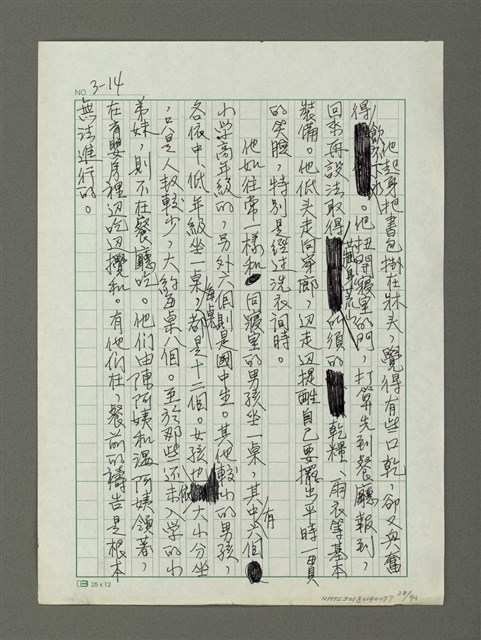 NO. 3-14
他起身把書包掛在牀頭，覺得有些口乾，卻又興奮
得飲不下水。他扭開寢室的門，打算先到餐廳報到，
回來再設法取得所須的乾糧、雨衣等基本
裝備。他低头走向穿廊，邊走邊提醒自己要擺出平時一貫
的笑臉，特別是經过洗衣间時。
他如往常一樣和同寢室的男孩坐一桌，其中有六個
小學高年級的，另外六個則是國中生。其他較小的男孩，
各依中、低年級坐一桌，每桌都是十二個。女孩也依大小分坐
，只是人数較少，大約每桌八個。至於那些还未入学的小
弟妹，則不在餐廳吃。他們由陳阿姨和溫阿姨領著，
在育嬰房裡边吃边攪和。有他們在，餐前的禱告是根本
無法進行的。
25 x 12